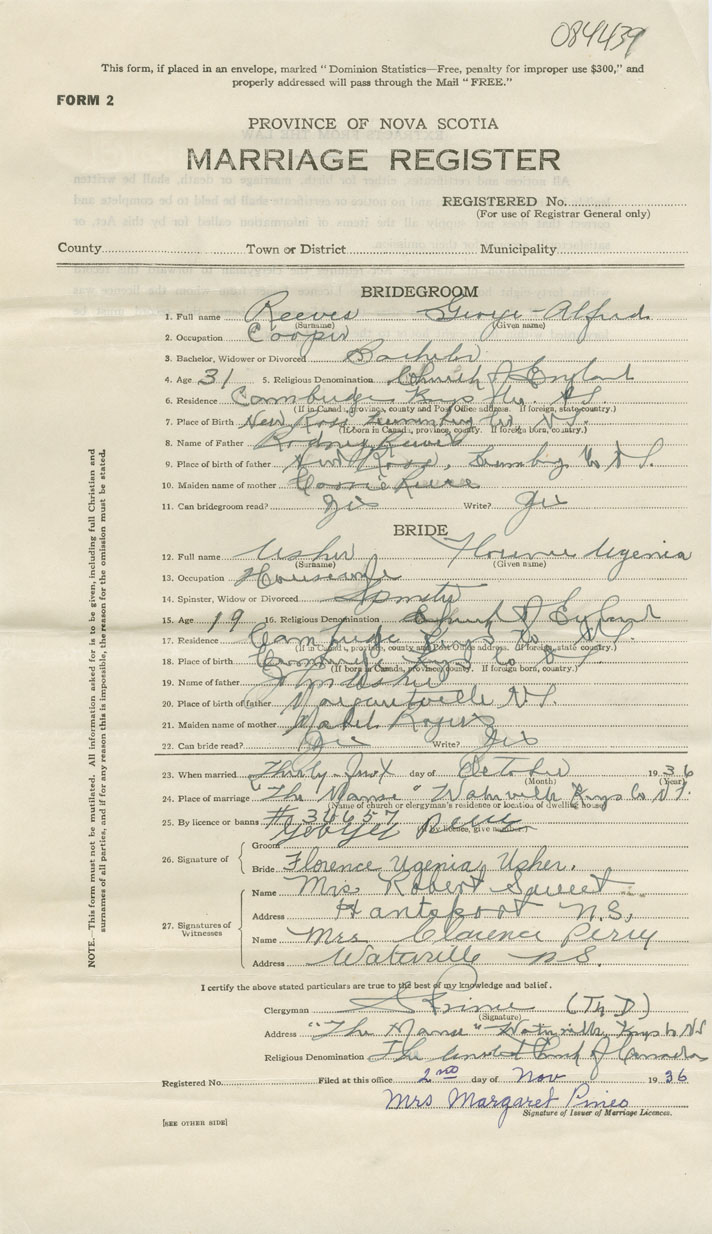 084439
This form, if placed in an envelope, marked "Dominion Statistics—Free, penalty for improper use $300," and
properly addressed will pass through the Mail "FREE."
FORM 2
PROVINCE OF NOVA SCOTIA
MARRIAGE REGISTER
REGISTERED No.
(For use of Registrar General only)
County Town or District Municipality
BRIDEGROOM
1. Full name Reeves George Alfred
(Surname) (Given name)
2. Occupation Cooper
3. Bachelor, Widower or Divorced Bachelor
4. Age 31 5. Religious Denomination Church of England
6. Residence Cambridge Kings Co. N.S.
(If in Canada, province, county and Post Office address. If foreign, state country.)
7. Place of Birth New Ross Lunenburg Co N.S.
(If born in Canada, province, county. If foreign born, country.)
8. Name of Father Rodney Reeves
9. Place of birth of father New Ross, Lunenburg Co N.S.
10. Maiden name of mother
11. Can bridegroom read? Yes Write? Yes
BRIDE
12. Full name Usher Florence Ugenia
(Surname) (Given name)
13. Occupation Housewife
14. Spinster, Widow or Divorced Spinster
15. Age 19 16. Religious Denomination Church of England
17. Residence Cambridge Kings Co N.S.
(If in Canada, province, county and Post Office address. If foreign, state country.)
18. Place of birth Cambridge Kings Co N.S.
(If born in Canada, province, county. If foreign born, country.)
19. Name of father John Usher
20. Place of birth of father Margaretville N.S.
21. Maiden name of mother Mabel Rogers
22. Can bride read? Yes Write? Yes
23. When married Thirty-first day of October 1936
(Month) (Year)
24. Place of marriage "The Manse" Waterville Kings Co N.S.
(Name of church or clergyman's residence or location of dwelling house)
25. By licence or banns # 36657
(By licence, give number)
26. Signature of
Groom
Bride Florence Ugenia Usher.
27. Signatures of Witnesses
Name Mrs. Robert
Address Hantsport N.S.
Name Mrs Clarence Perry
Address Waterville N.S.
I certify the above stated particulars are true to the best of my knowledge and belief.
Clergyman Prime (Th D)
(Signature)
Address "The Manse" Waterville Kings Co N.S
Religious Denomination The United Church of Canada
Registered No. Filed at this office 2nd day of Nov 1936
Mrs Margaret Pineo
Signature of Issuer of Marriage Licences.
[SEE OTHER SIDE]
NOTE.—This form must not be mutilated. All information asked for is to be given, including full Christian and
surnames of all parties, and if for any reason this is impossible, the reason for the omission must be stated.